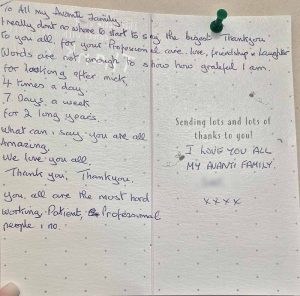 To All my Avanti Family.
I really dont no where to start to say the biggest Thankyou
to you all for your Professional care. love, friendship & laughter
Words are not enough to show how grateful I am.
for looking after mick
4 times a day.
7 Days. a week
for 2 long years.
what can i say. you are all
Amazing.
We love you all.
Thank you. Thankyou.
you. all are the most hard
working, Patient, & Professional
people i no.
Sending lots and lots of
thanks to you!
I LOVE YOU ALL
MY AVANTI FAMILY.
x x x x